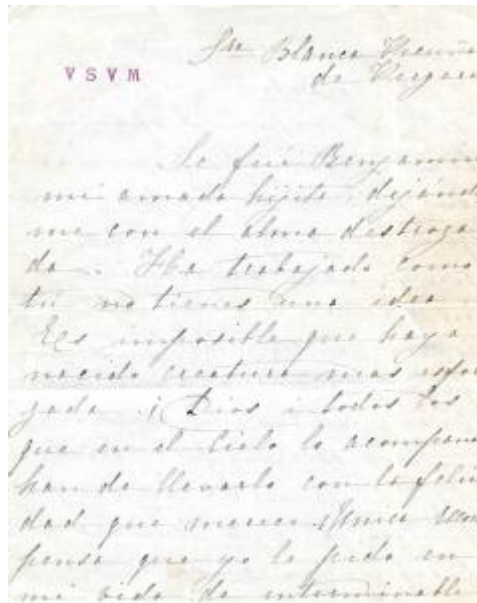 Sra Blanca Vicuña
de Vergara
V S V M
Se fué Benjamin
mi amada hijita, dejándo
me con el alma destroza
da. Ha trabajado como
tú no tienes una idea.
Es imposible que haya
nacido creatura mas esfor
zada. ¡Dios i todos los
que en el Cielo lo acompañan
han de llevarlo con la felici
dad que merece. Unica recom
pensa que yo le pido en
mi vida de interminable